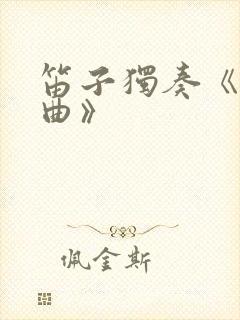 笛子獨奏《
曲》
佩金斯